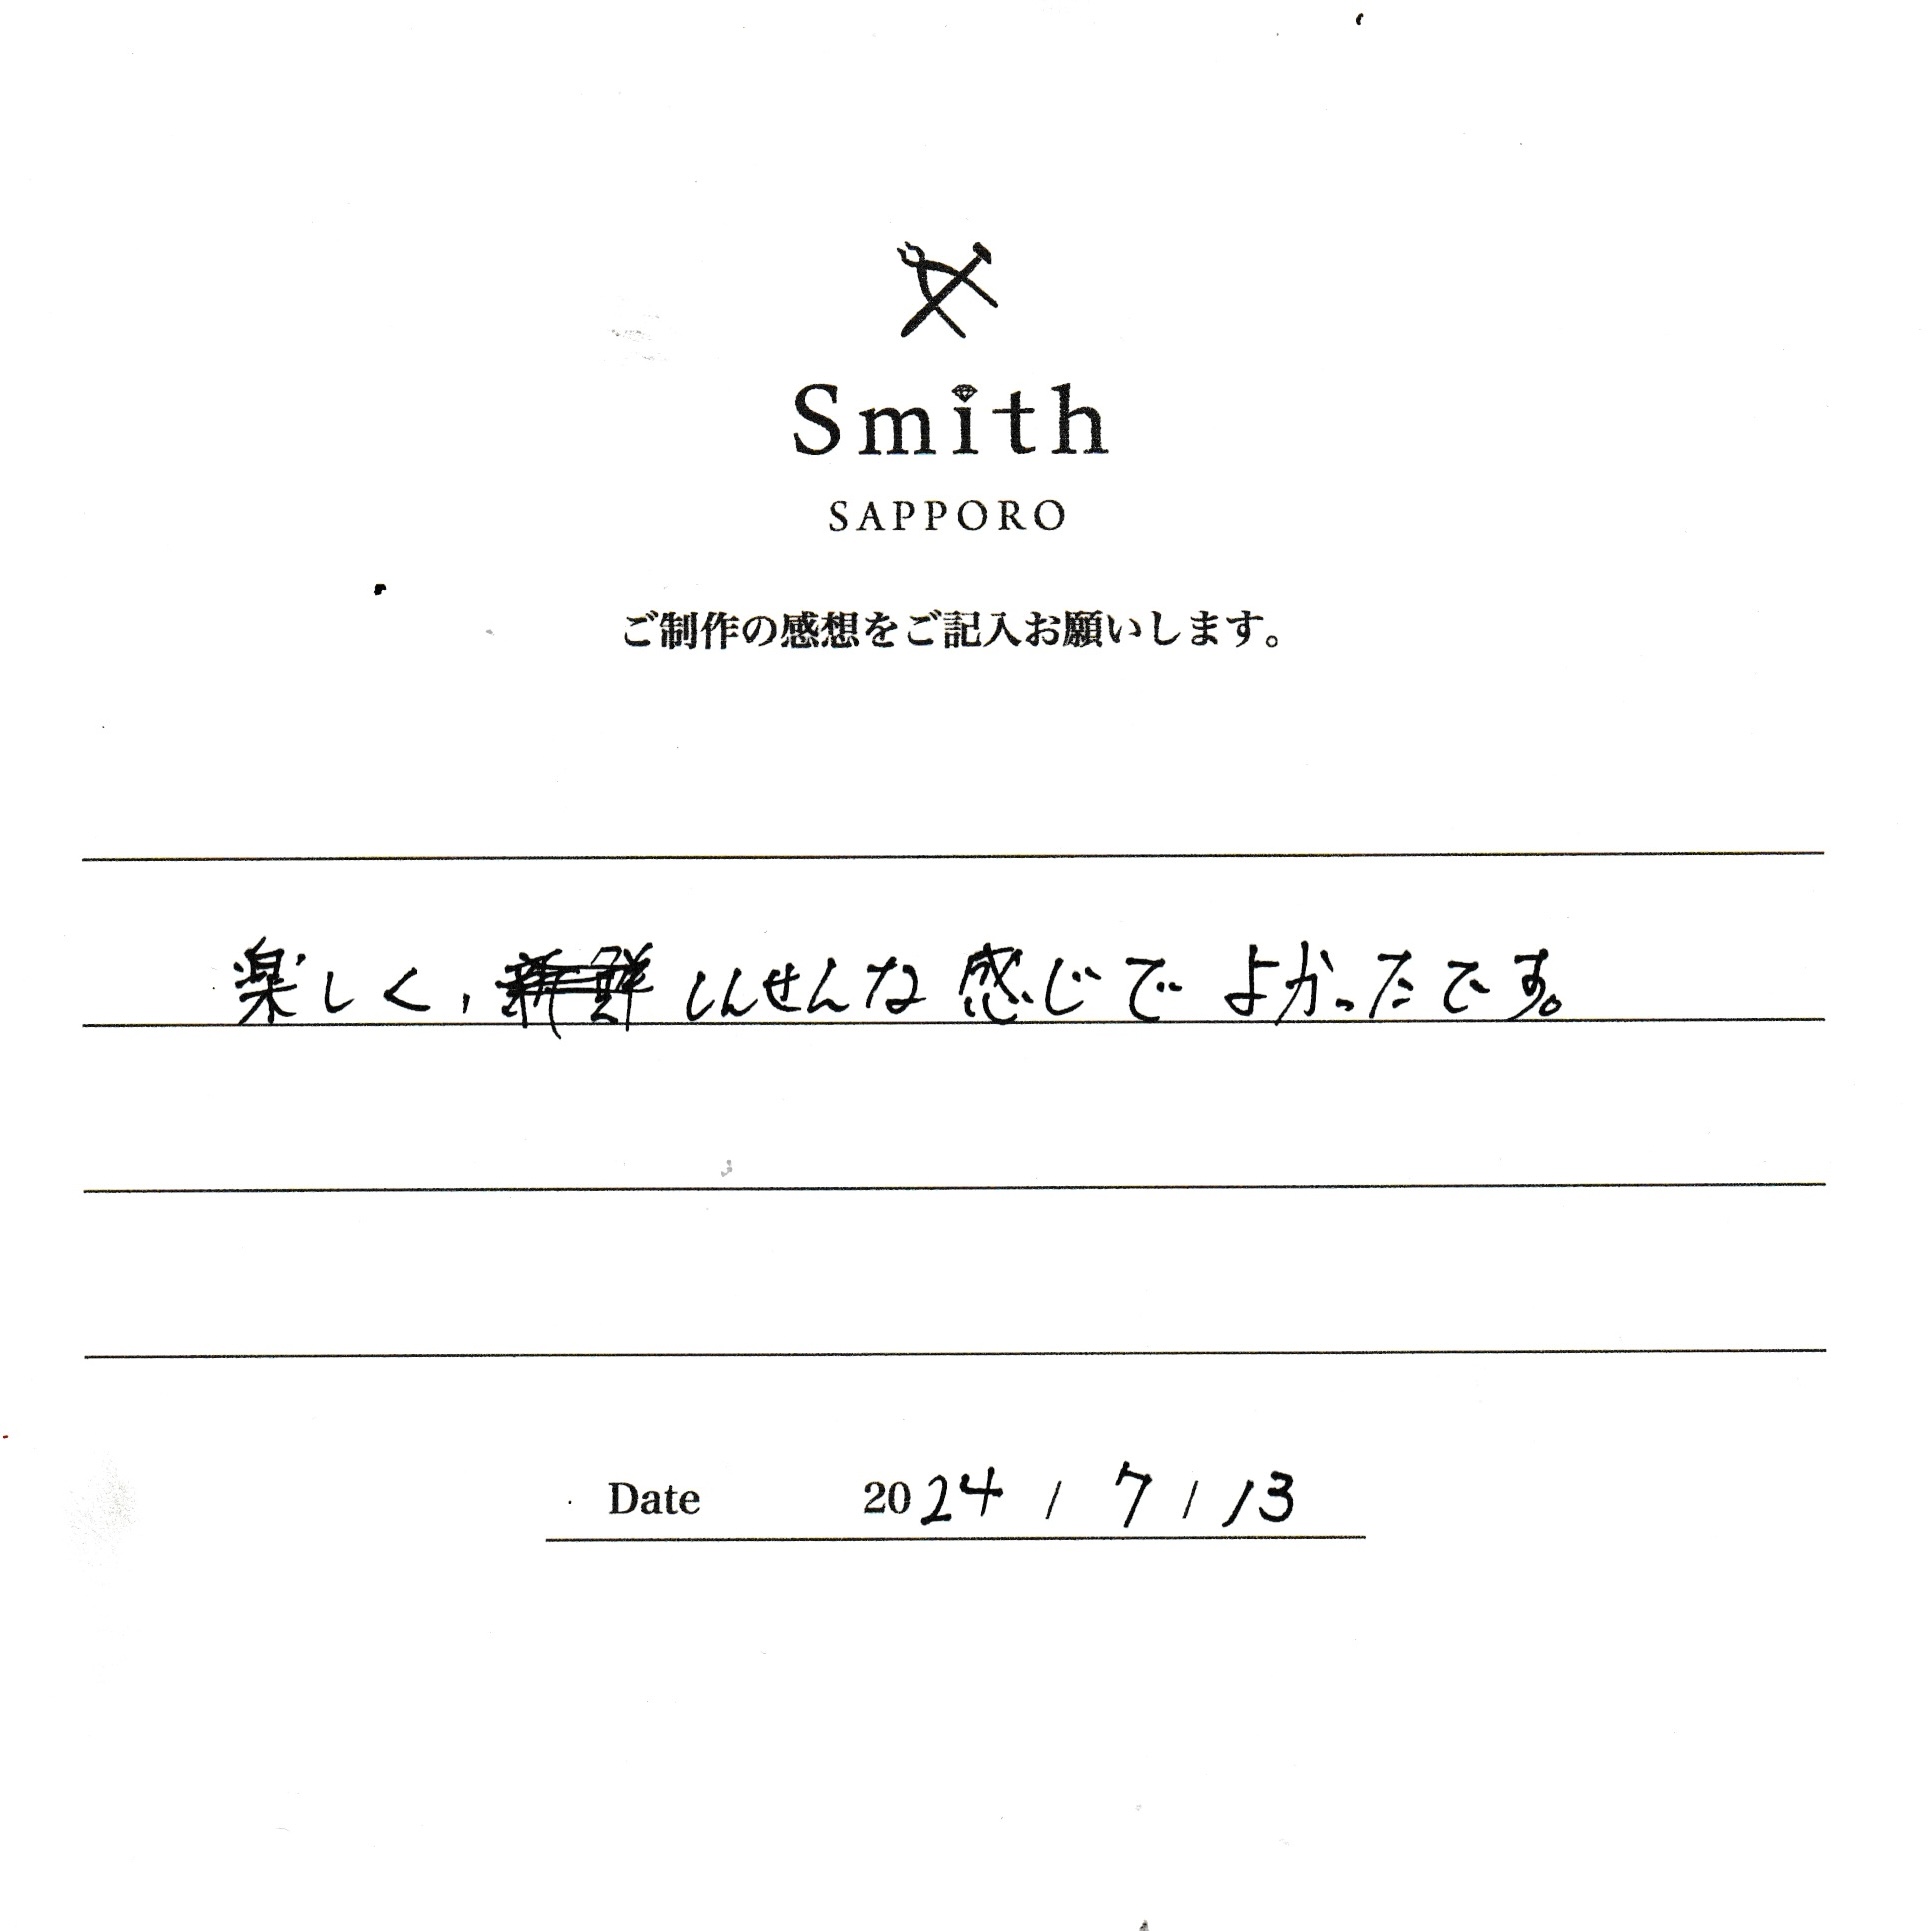 Smith
SAPPORO
ご制作の感想をご記入お願いします。
楽しく, しんせんな感じでよかったです。
Date 2024 / 7 / 13